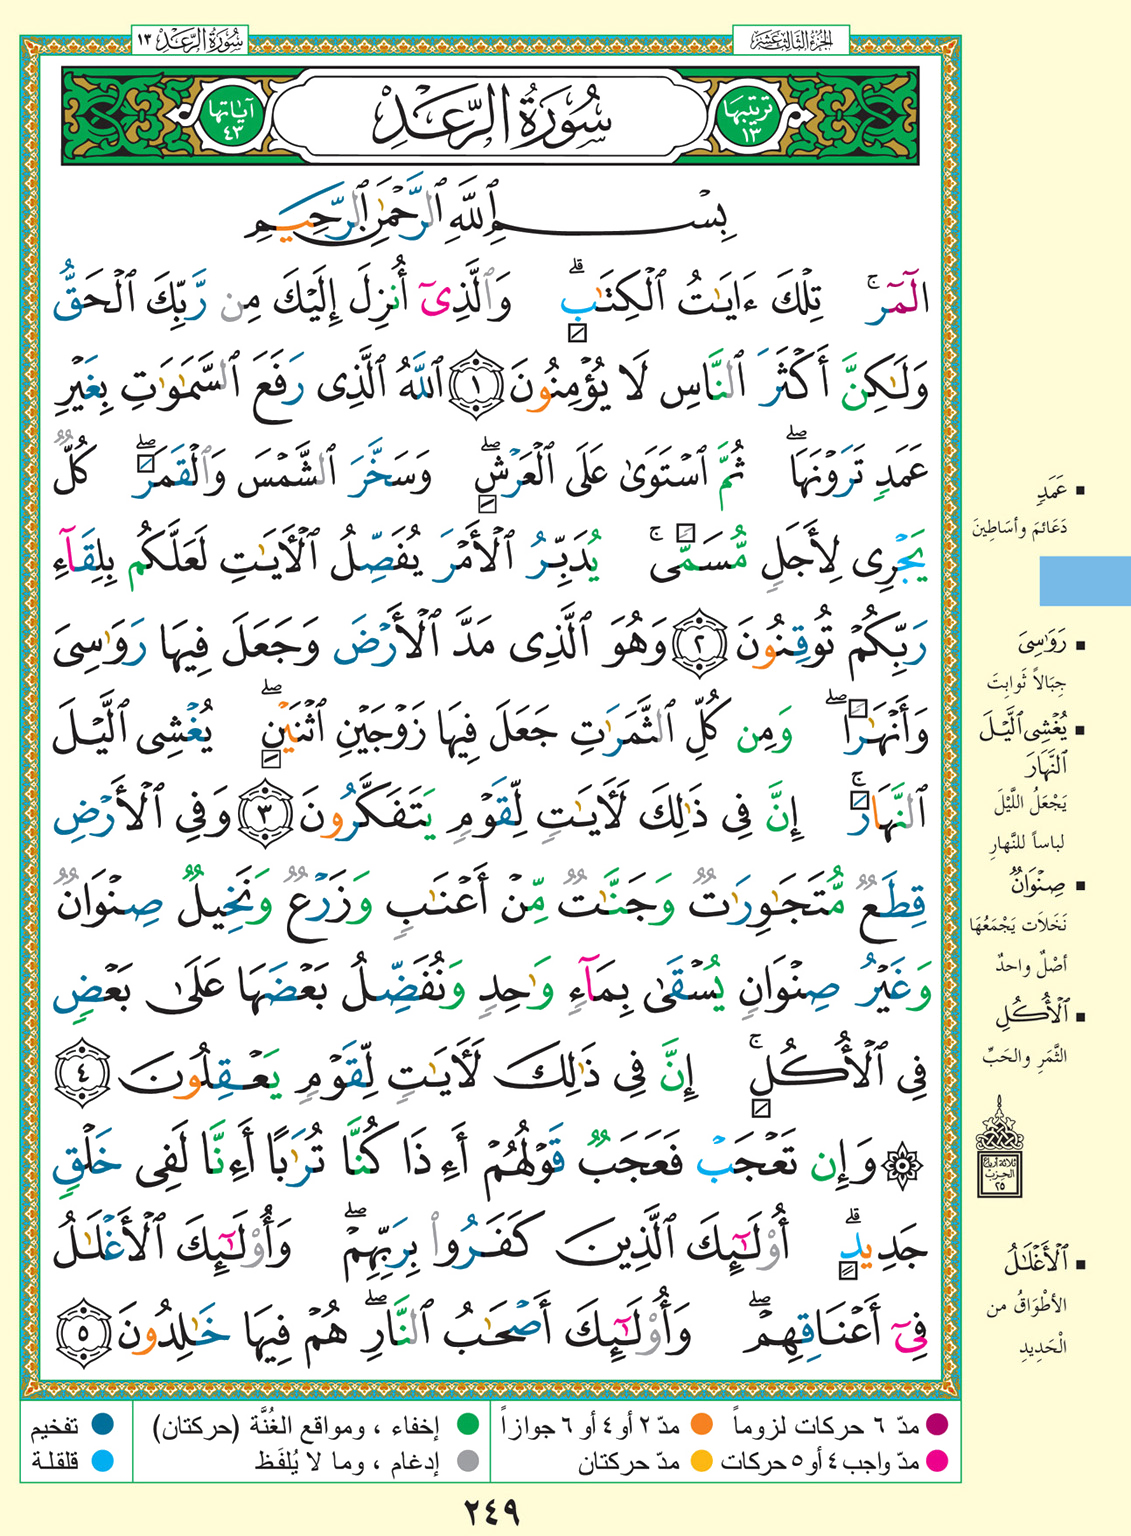 الجزء الثالث عشر
سورة الرعد ١٣
ترتيبها ١٣
سُورَةُ الرَّعْدِ
آياتها ٤٣
بِسْمِ ٱللَّهِ ٱلرَّحْمَٰنِ ٱلرَّحِيمِ
الٓمٓر ۚ تِلْكَ ءَايَٰتُ ٱلْكِتَٰبِ ۗ وَٱلَّذِىٓ أُنزِلَ إِلَيْكَ مِن رَّبِّكَ ٱلْحَقُّ
وَلَٰكِنَّ أَكْثَرَ ٱلنَّاسِ لَا يُؤْمِنُونَ ١ ٱللَّهُ ٱلَّذِى رَفَعَ ٱلسَّمَٰوَٰتِ بِغَيْرِ
عَمَدٍ تَرَوْنَهَا ۖ ثُمَّ ٱسْتَوَىٰ عَلَى ٱلْعَرْشِ ۖ وَسَخَّرَ ٱلشَّمْسَ وَٱلْقَمَرَ ۖ كُلٌّ
يَجْرِى لِأَجَلٍ مُّسَمًّى ۚ يُدَبِّرُ ٱلْأَمْرَ يُفَصِّلُ ٱلْأَيَٰتِ لَعَلَّكُم بِلِقَآءِ
رَبِّكُمْ تُوقِنُونَ ٢ وَهُوَ ٱلَّذِى مَدَّ ٱلْأَرْضَ وَجَعَلَ فِيهَا رَوَٰسِىَ
وَأَنْهَٰرًا ۖ وَمِن كُلِّ ٱلثَّمَرَٰتِ جَعَلَ فِيهَا زَوْجَيْنِ ٱثْنَيْنِ ۖ يُغْشِى ٱلَّيْلَ
ٱلنَّهَارَ ۚ إِنَّ فِى ذَٰلِكَ لَأَيَٰتٍ لِّقَوْمٍ يَتَفَكَّرُونَ ٣ وَفِى ٱلْأَرْضِ
قِطَعٌ مُّتَجَٰوِرَٰتٌ وَجَنَّٰتٌ مِّنْ أَعْنَٰبٍ وَزَرْعٌ وَنَخِيلٌ صِنْوَانٌ
وَغَيْرُ صِنْوَانٍ يُسْقَىٰ بِمَآءٍ وَٰحِدٍ وَنُفَضِّلُ بَعْضَهَا عَلَىٰ بَعْضٍ
فِى ٱلْأُكُلِ ۚ إِنَّ فِى ذَٰلِكَ لَأَيَٰتٍ لِّقَوْمٍ يَعْقِلُونَ ٤
۞ وَإِن تَعْجَبْ فَعَجَبٌ قَوْلُهُمْ أَءِذَا كُنَّا تُرَٰبًا أَءِنَّا لَفِى خَلْقٍ
جَدِيدٍ ۗ أُو۟لَٰٓئِكَ ٱلَّذِينَ كَفَرُوا۟ بِرَبِّهِمْ ۖ وَأُو۟لَٰٓئِكَ ٱلْأَغْلَٰلُ
فِىٓ أَعْنَاقِهِمْ ۖ وَأُو۟لَٰٓئِكَ أَصْحَٰبُ ٱلنَّارِ ۖ هُمْ فِيهَا خَٰلِدُونَ ٥
عَمَدٍ
دَعَائمَ وأسَاطِينَ
رَوَٰسِىَ
جِبَالاً ثَوابِتَ
يُغْشِى ٱلَّيْلَ
ٱلنَّهَارَ
يَجْعَلُ اللَّيْلَ
لباساً للنَّهارِ
صِنْوَانٌ
نَخَلاَت يَجْمَعُهَا
أصْلٌ واحدٌ
ٱلْأُكُلِ
الثَّمَرِ والحَبِّ
ثلاثة أرباع
الحزب
٢٥
ٱلْأَغْلَٰلُ
الأطْوَاقُ من
الْحَدِيدِ
مدّ ٦ حركات لزوماً
مدّ ٢ أو ٤ أو ٦ جوازاً
إخفاء ، ومواقع الغُنَّة (حركتان)
تفخيم
مدّ واجب ٤ أو ٥ حركات
مدّ حركتان
إدغام ، وما لا يُلفَظ
قلقلة
٢٤٩